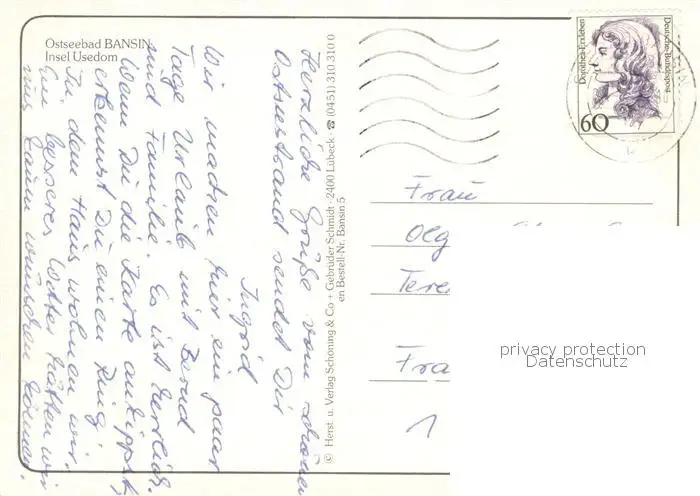 Ostseebad BANSIN
Insel Usedom
Herzliche Grüße vom schönen
Ostseestrand sendet Dir
Ingrid
Wir machen hier ein paar
Tage Urlaub mit Bernd
und Familie. Es ist herrlich.
Wenn Du die Karte ankippst,
erkennst Du einen Ring
In dem Haus wohnen wir.
Ein besseres Wetter hätten wir
uns kaum wünschen können.
© Herst. u. Verlag Schöning & Co + Gebrüder Schmidt · 2400 Lübeck · ☎ (0451) 310 310 0
en Bestell-Nr. Bansin 5
Dorothea Erxleben
Deutsche Bundespost
60
Frau
Olg
Tere
Fra
1
privacy protection
Datenschutz